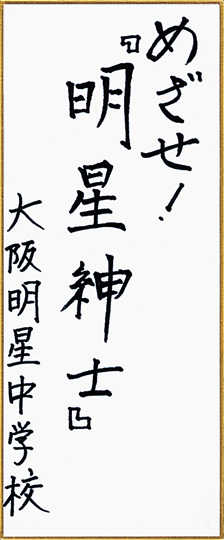 めざせ！
『明星紳士』
大阪明星中学校